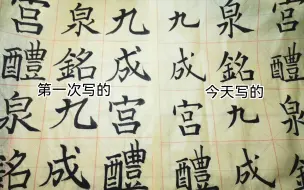 九成宫醴
泉銘九成
宫醴泉銘
第一次写的
九成宫醴
泉銘九成
宫醴泉銘
今天写的